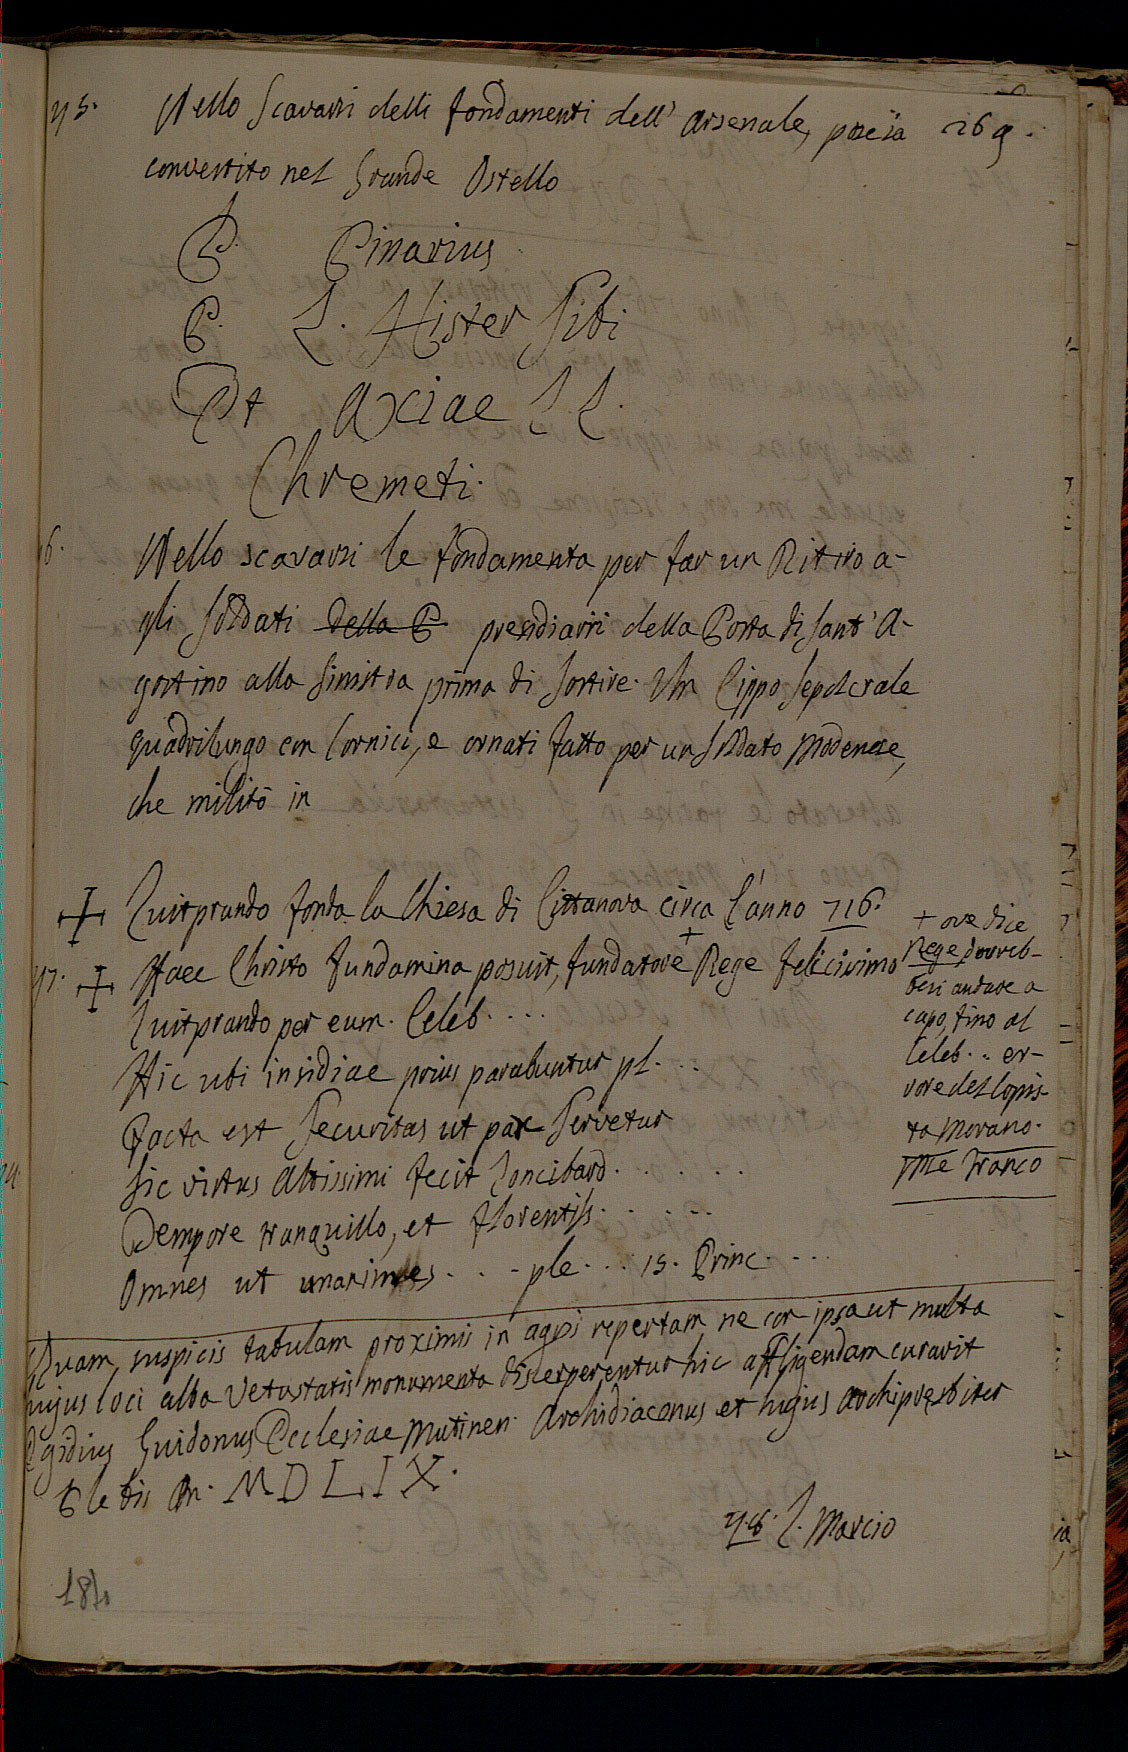 45. Nello scavarsi delli fondamenti dell' Arsenale, poscia 269.
convertito nel Grande Ostello
P. Pinarius
P. L. Hister Sibi
Et Axiae L. L.
Chremeti.
6. Nello scavarsi le fondamenta per far un Ritiro a-
gli Soldati della P presidiarii della Porta di Sant' A-
gostino alla sinistra prima di sortire. Un Cippo sepolcrale
quadrilungo con Cornici, e ornati fatto per un soldato Modenese,
che militò in
Luitprando fonda la Chiesa di Cittanova circa l'anno 716.
47. Haec Christo fundamina posuit, fundatore + Rege felicisimo
Luitprando per eum. Celeb....
Hic ubi insidiae prius parabuntur pl...
Facta est securitas ut pax servetur
Sic virtus Altissimi fecit Loncibard......
Tempore tranquillo, et florentiss......
Omnes ut unanimes... ple... is. Princ....
+ ove dice
Rege dovreb-
besi andare a
capo, fino al
Celeb... er-
rore del Copis-
ta Morano.
me Franco
Quam suspicis tabulam proximis in agris repertam ne cor ipsa ut multa
hujus loci alba vetustatis monumenta discerperentur hic affligendam curavit
Egidius Guidonus Ecclesiae Mutinen. Archidiaconus et hujus Archipresbiter
Plebis An. MDLIX.
48. L. Marcio
184